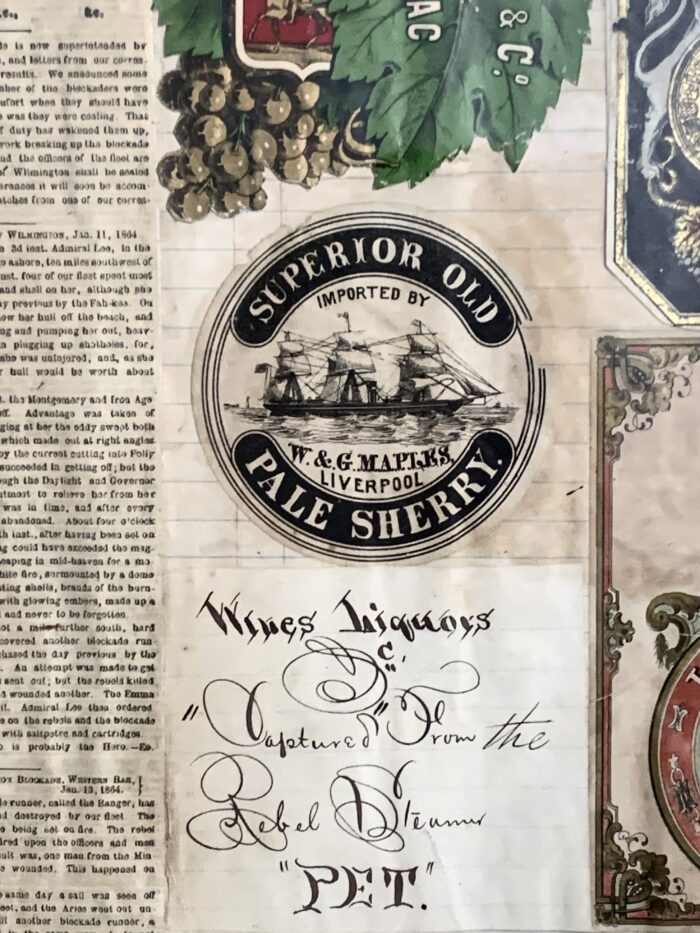 &c., &c.
is now superintended by
, and letters from our corres-
results. We announced some
ber of the blockaders were
ufort when they should have
was they were coaling. That
f duty has wakened them up,
work breaking up the blockade
nd the officers of the fleet are
of Wilmington shall be sealed
arances it will soon be accom-
atches from one of our corres-
WILMINGTON, Jan. 11, 1864
3d inst. Admiral Lee, in the
ashore, ten miles southwest of
nst. four of our fleet spent most
and shell on her, although she
y previous by the Fah-kee. On
ow her hull off the beach, and
ng and pumping her out, heav-
n plugging up shotholes, for,
she was uninjured, and, as she
r hull would be worth about
t. the Montgomery and Iron Age
off. Advantage was taken of
ging at her the eddy swept both
which made out at right angles
by the current cutting into Folly
succeeded in getting off; but the
ugh the Daylight and Governor
utmost to relieve her from her
was in time, and after every
abandoned. About four o'clock
th inst., after having been set on
ng could have exceeded the mag-
eaping in mid-heaven for a mo-
hite fire, surmounted by a dome
ting shells, brands of the burn-
with glowing embers, made up a
l and never to be forgotten.
ot a mile further south, hard
covered another blockade run-
chased the day previous by the
An attempt was made to get
sent out; but the rebels killed
d wounded another. The Emma
it. Admiral Lee then ordered
e on the rebels and the blockade
with saltpetre and cartridges.
o is probably the Hero.—ED.
ON BLOCKADE, WESTERN BAR,
Jan. 13, 1864.
le runner, called the Ranger, has
d destroyed by our fleet. The
e being set on fire. The rebel
ired upon the officers and men
sult was, one man from the Min-
e wounded. This happened on
same day a sail was seen off
eet, and the Aries went out un-
ll another blockade runner, a
AC
& Co.
SUPERIOR OLD
IMPORTED BY
W. & G. MAPLES,
LIVERPOOL
PALE SHERRY.
Wines Liquors
&c.
"Captured" From the
Rebel Steamer
"PET."